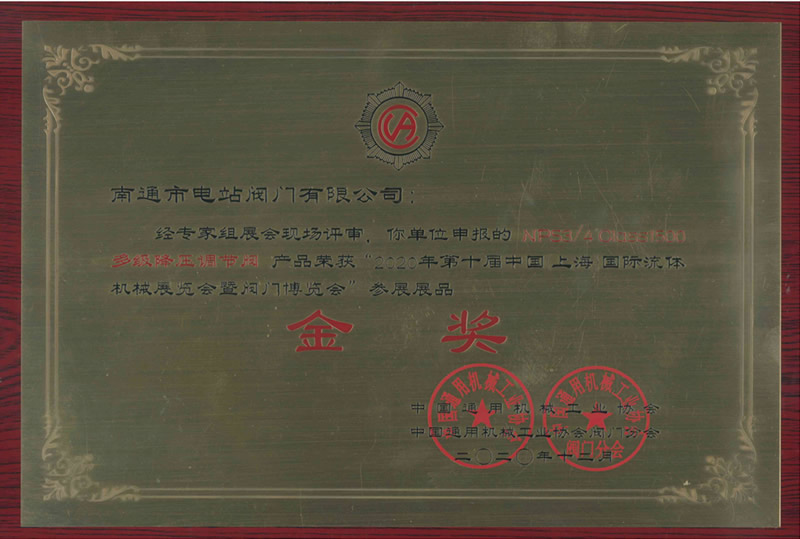 南通市电站阀门有限公司：
经专家组展会现场评审，你单位申报的
多级降压调节阀 产品荣获“2020年第十届中国 上海 国际流体
机械展览会暨阀门博览会”参展展品
金 奖
中国通用机械工业协会
中国通用机械工业协会阀门分会
二〇二〇年十二月
阀门分会